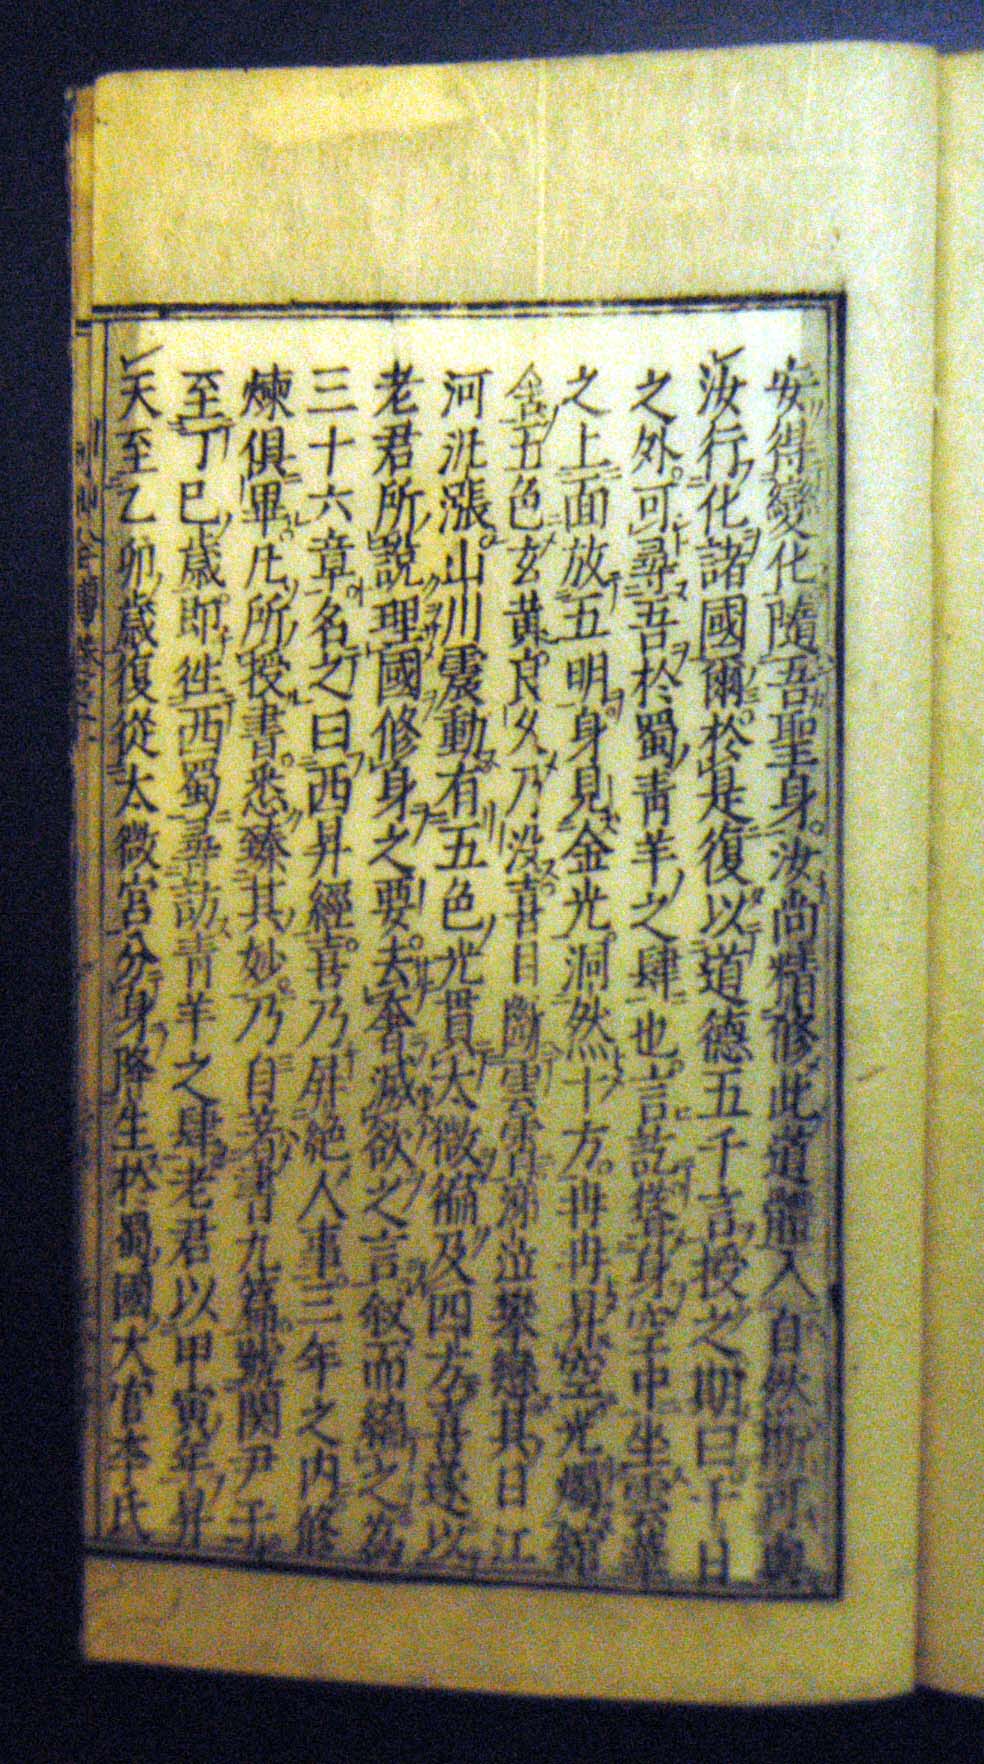 安得變化隨吾聖身汝尚精修此道體入自然斯可與
汝行化諸國爾於是復以道德五千言授之期曰千日
之外可尋吾於蜀青羊之肆也言訖聳身空中坐雲華
之上面放五明身見金光洞然十方冉冉昇空光燭館
舍五色玄黄良久乃没喜目斷雲霄涕泣攀戀其日江
河汎漲山川震動有五色光貫太微徧及四方喜遂以
老君所說理國修身之要去奢滅欲之言叙而編之為
三十六章名之曰西昇經喜乃屏絶人事三年之内修
煉俱畢凡所授書悉臻其妙乃自著書九篇號関尹子
至丁巳歳即徃西蜀尋訪青羊之肆老君以甲寅年昇
天至乙卯歳復從太微宮分身降生於蜀國大官李氏